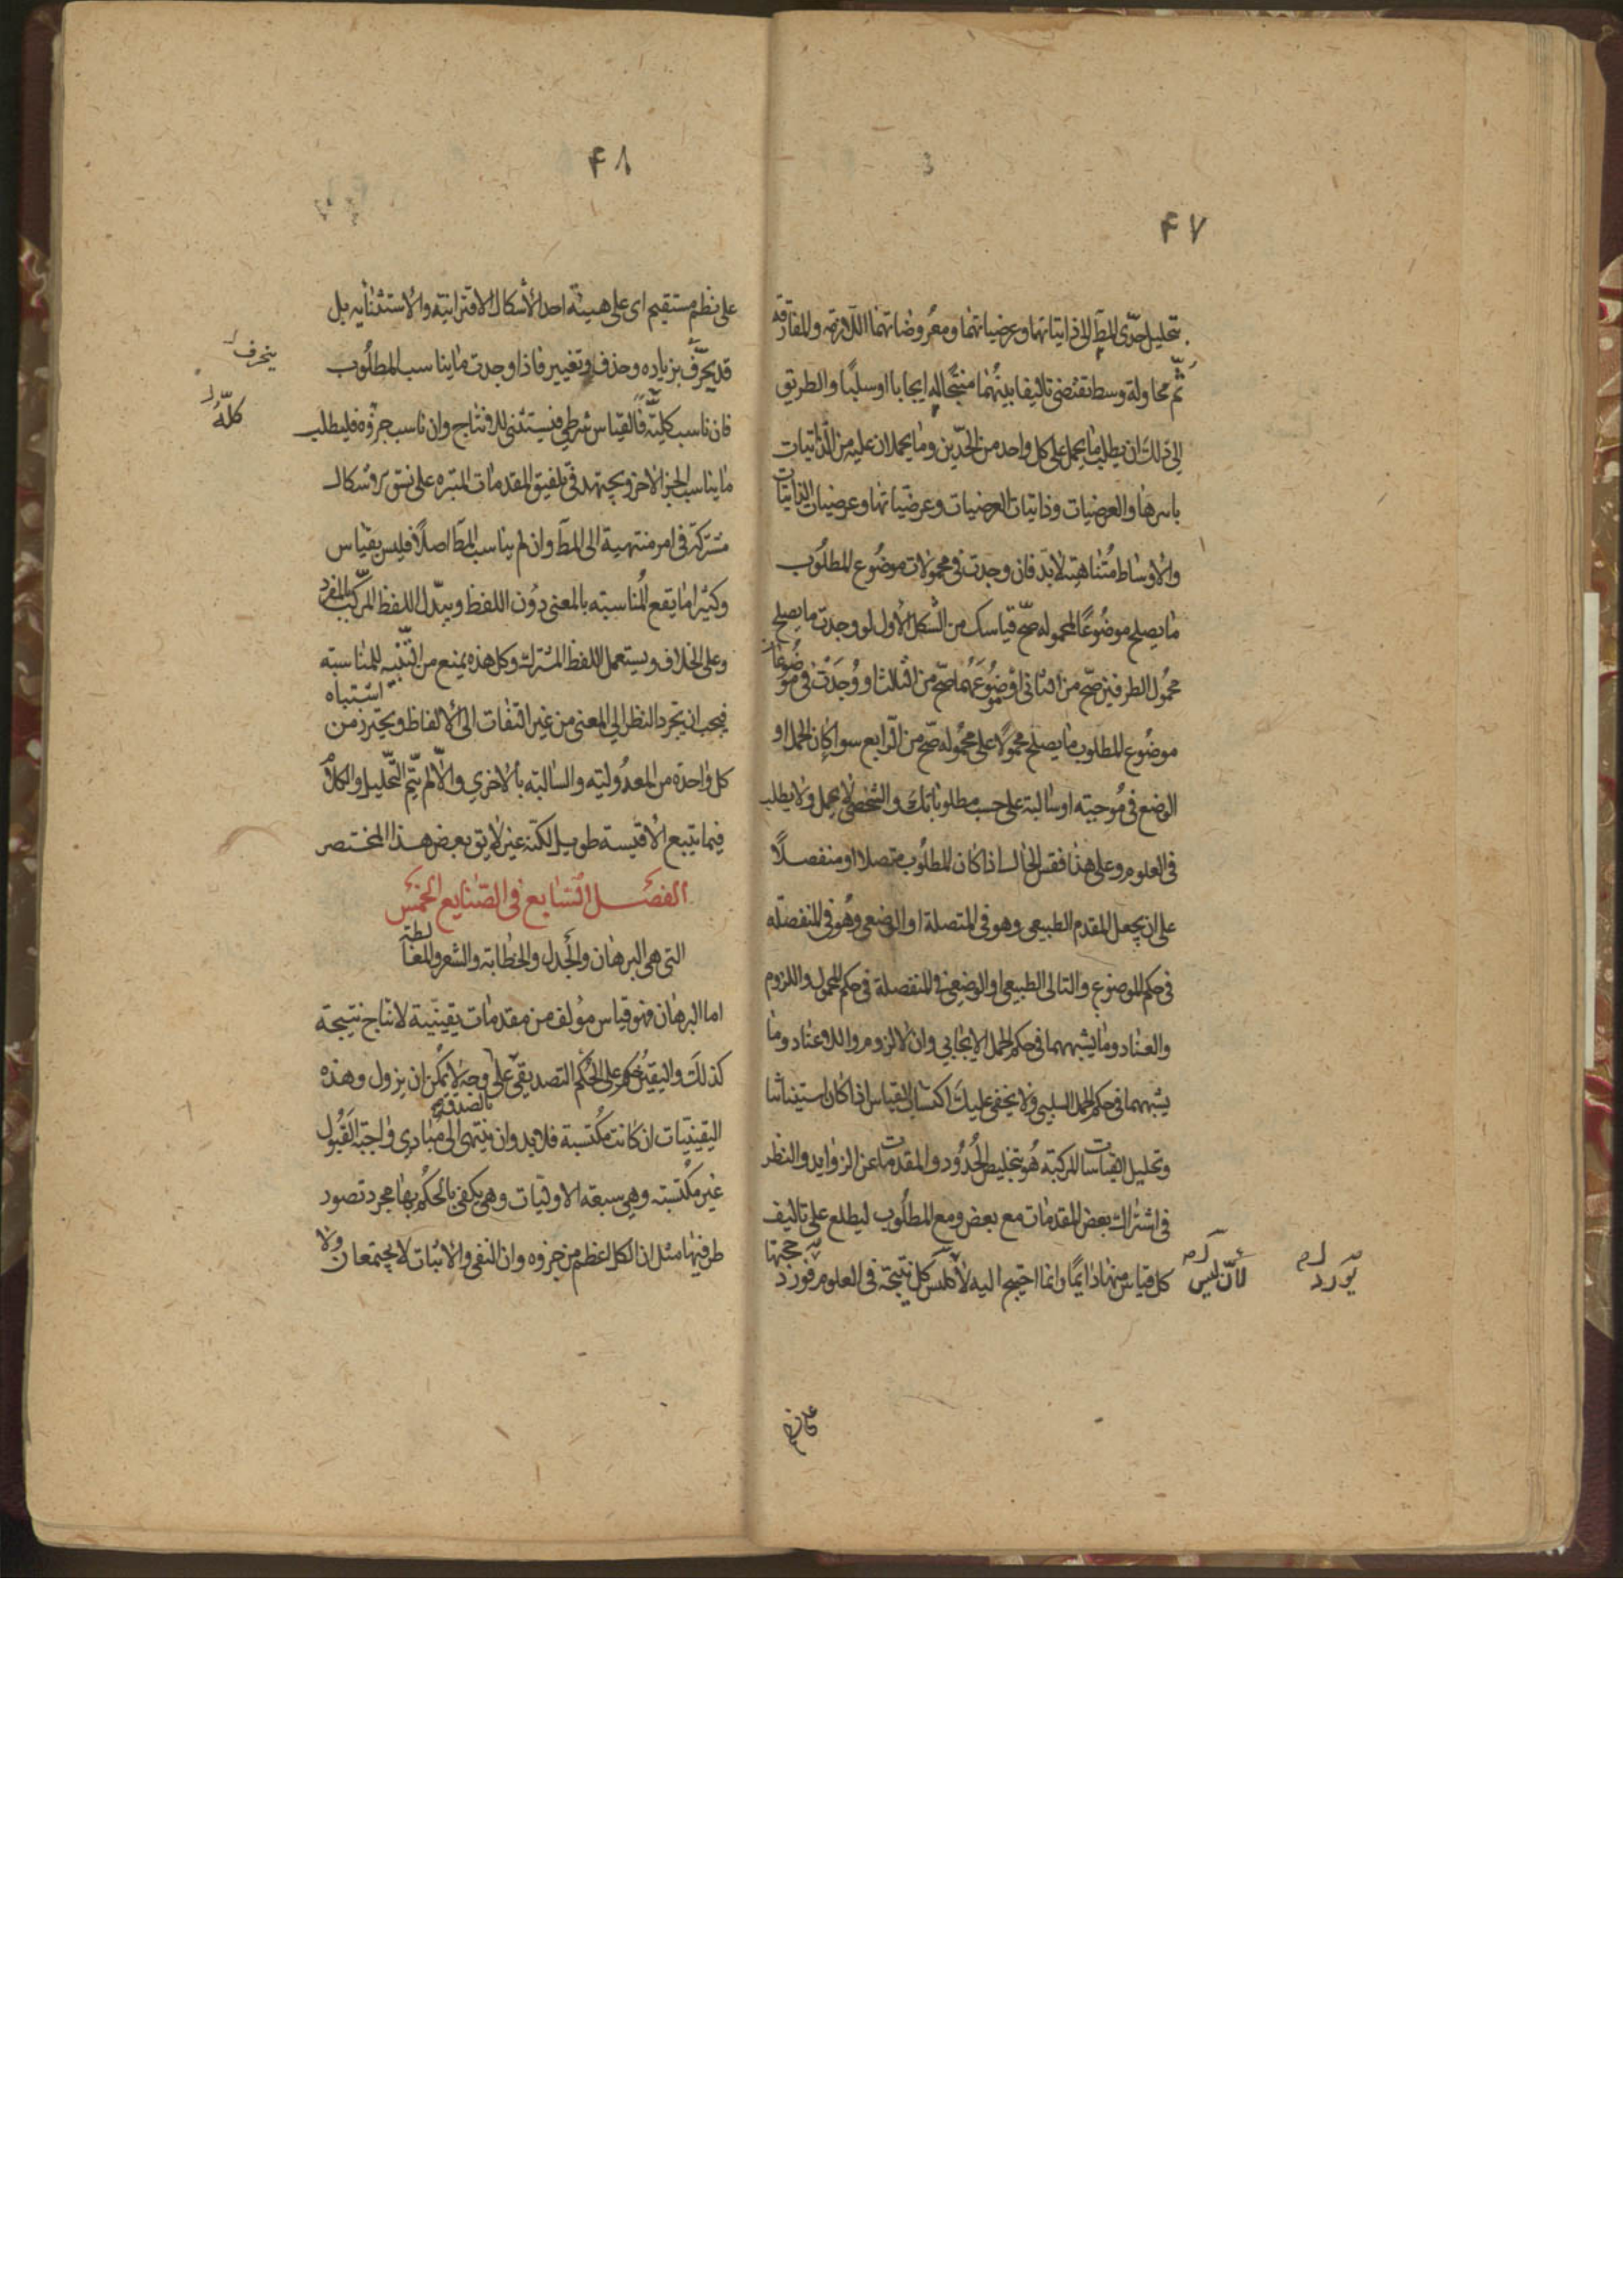 ۴۷
بتحليل حدّى المط الى ذاتياتهما وعرضياتهما ومعروضاتهما اللازمة والمفارقة
ثم محاولة وسط تقتضى تاليفا بينهما منتجا له ايجابا او سلبًا والطريق
الى ذلك ان يطلب ما يحمل على كل واحد من الحدّين وما يحملان عليه من الذاتيات
باسرها والعرضيات وذاتيات العرضيات وعرضياتها وعرضيات الذاتيات
والاوساط متناهية لابد فان وجدت فى محمولات موضوع المطلوب
ما يصلح موضوعًا لمحموله صحّ قياسك من الشكل الاول لو وجدت ما يصلح
محمول الطرفين صحّ من الثانى او موضوعهما صحّ من الثالث او وجدت فى موضوعات
موضوع المطلوب ما يصلح محمولًا على محموله صحّ من الرابع سوا كان الحمل او
الوضع فى موجبة او سالبة على حسب مطلوباتك والشخصى لا يحمل ولا يطلب
فى العلوم وعلى هذا فقس الحال اذا كان المطلوب متصلا او منفصلًا
على ان يجعل المقدم الطبيعى وهو فى المتصلة او الوضعى وهو فى المنفصله
فى حكم الموضوع والتالى الطبيعى او الوضعى فى المنفصلة فى حكم المحمول واللزوم
والعناد وما يشبههما فى حكم الحمل الايجابي وان لا لزوم واللا عناد وما
يشبههما فى حكم الحمل السلبى ولا يخفى عليك اكتساب القياس اذا كان استثنائيا
وتحليل القياسات المركبة هو بتخليص الحدود والمقدمات عن الزوايد والنظر
فى اشتراك بعض المقدمات مع بعض ومع المطلوب ليطلع على تاليف
كل قياس منها دايمًا وانما احتيج اليه لأن ليس كل نتيجة فى العلوم فورد حجتها
لأن ليس
يورد
على نظم
۴۸
على نظم مستقيم اى على هيئة احد الاشكال الاقترانية والاستثنائيه بل
قد يحرّف بزياده وحذف وتغيير فاذا وجدت ما يناسب المطلوب
ينحرف
فان ناسب كليّته فالقياس شرطي فيستثنى للانتاج وان ناسب جزؤه فليطلب
كلّه
ما يناسب الجزالاخر ويجتهد فى تلفيق المقدمات المتبره على نسق
مشتركة فى امر منتهية الى المط وان لم يناسب المط اصلًا فليس بقياس
وكثيرا ما يقع المناسبة بالمعنى دون اللفظ ويبدل اللفظ المركب بالمفرد
وعلى الخلاف ويستعمل اللفظ المشترك وكل هذه يمنع من التنبيه للمناسبة
فيجب ان تجرد النظر الى المعنى من غير التفات الى الالفاظ ويحترز من اشتباه
كل واحدة من المعدولية والسالبة بالاخري والا لم يتم التحليل والكلام
فيما يتبع الاقيسة طويل لكنه غير لايق بعرض هذا المختصر
الفصل السابع فى الصنايع الخمس
التى هى البرهان والجدل والخطابة والشعر والمغالطة
اما البرهان فهو قياس مؤلف من مقدمات يقينية لانتاج نتيجة
كذلك واليقين حكم على الحكم التصديقى على وجه لا يمكن ان يزول وهذه
بالصدق
اليقينيات ان كانت مكتسبة فلابد وان ينتهى الى مبادى واجبة القبول
غير مكتسبة وهي سبعة الاوليات وهى يكفى بالحكم بها مجرد تصور
طرفيها مثل ان الكل اعظم من جزوه وان النفى والاثبات لا يجتمعان ولا